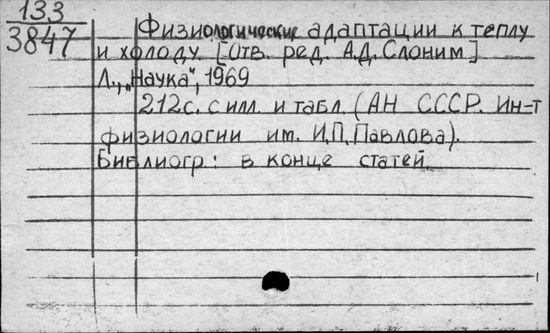 133
3847
Физиологические адаптации к теплу
и холоду. [Отв. ред. А.Д. Слоним]
Л., "Наука", 1969
212с. с илл. и табл. (АН СССР. Ин-т
физиологии им. И.П. Павлова).
Библиогр: в конце статей.